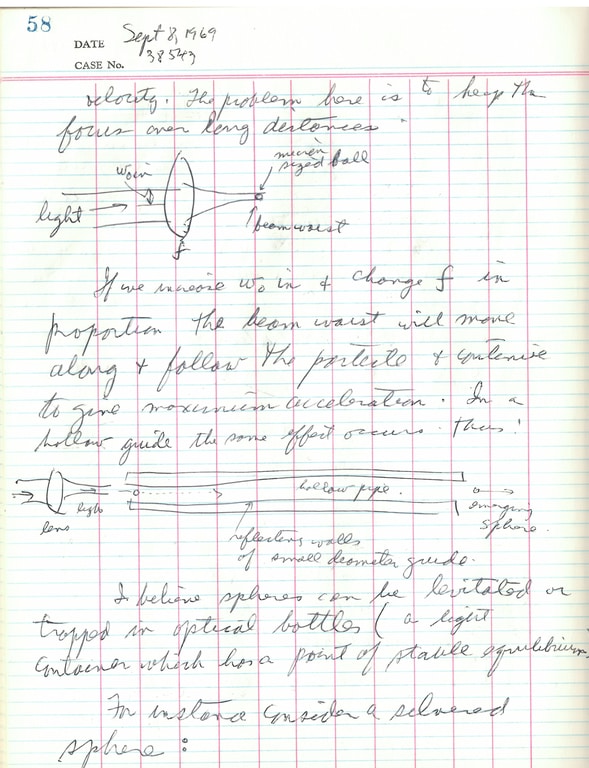 58
DATE Sept 8, 1969
CASE No. 38543
velocity. The problem here is to keep the
focus over long distances.
micron
sized ball
w₀ in
light
beam waist
f
If we increase w₀ in & change f in
proportion the beam waist will move
along & follow the particle & continue
to give maximum acceleration. In a
hollow guide the same effect occurs. Thus:
hollow pipe.
light
lens
emerging
sphere.
reflecting walls
of small diameter guide.
I believe spheres can be levitated or
trapped in optical bottles (a light
container which has a point of stable equilibrium.
For instance consider a silvered
sphere: